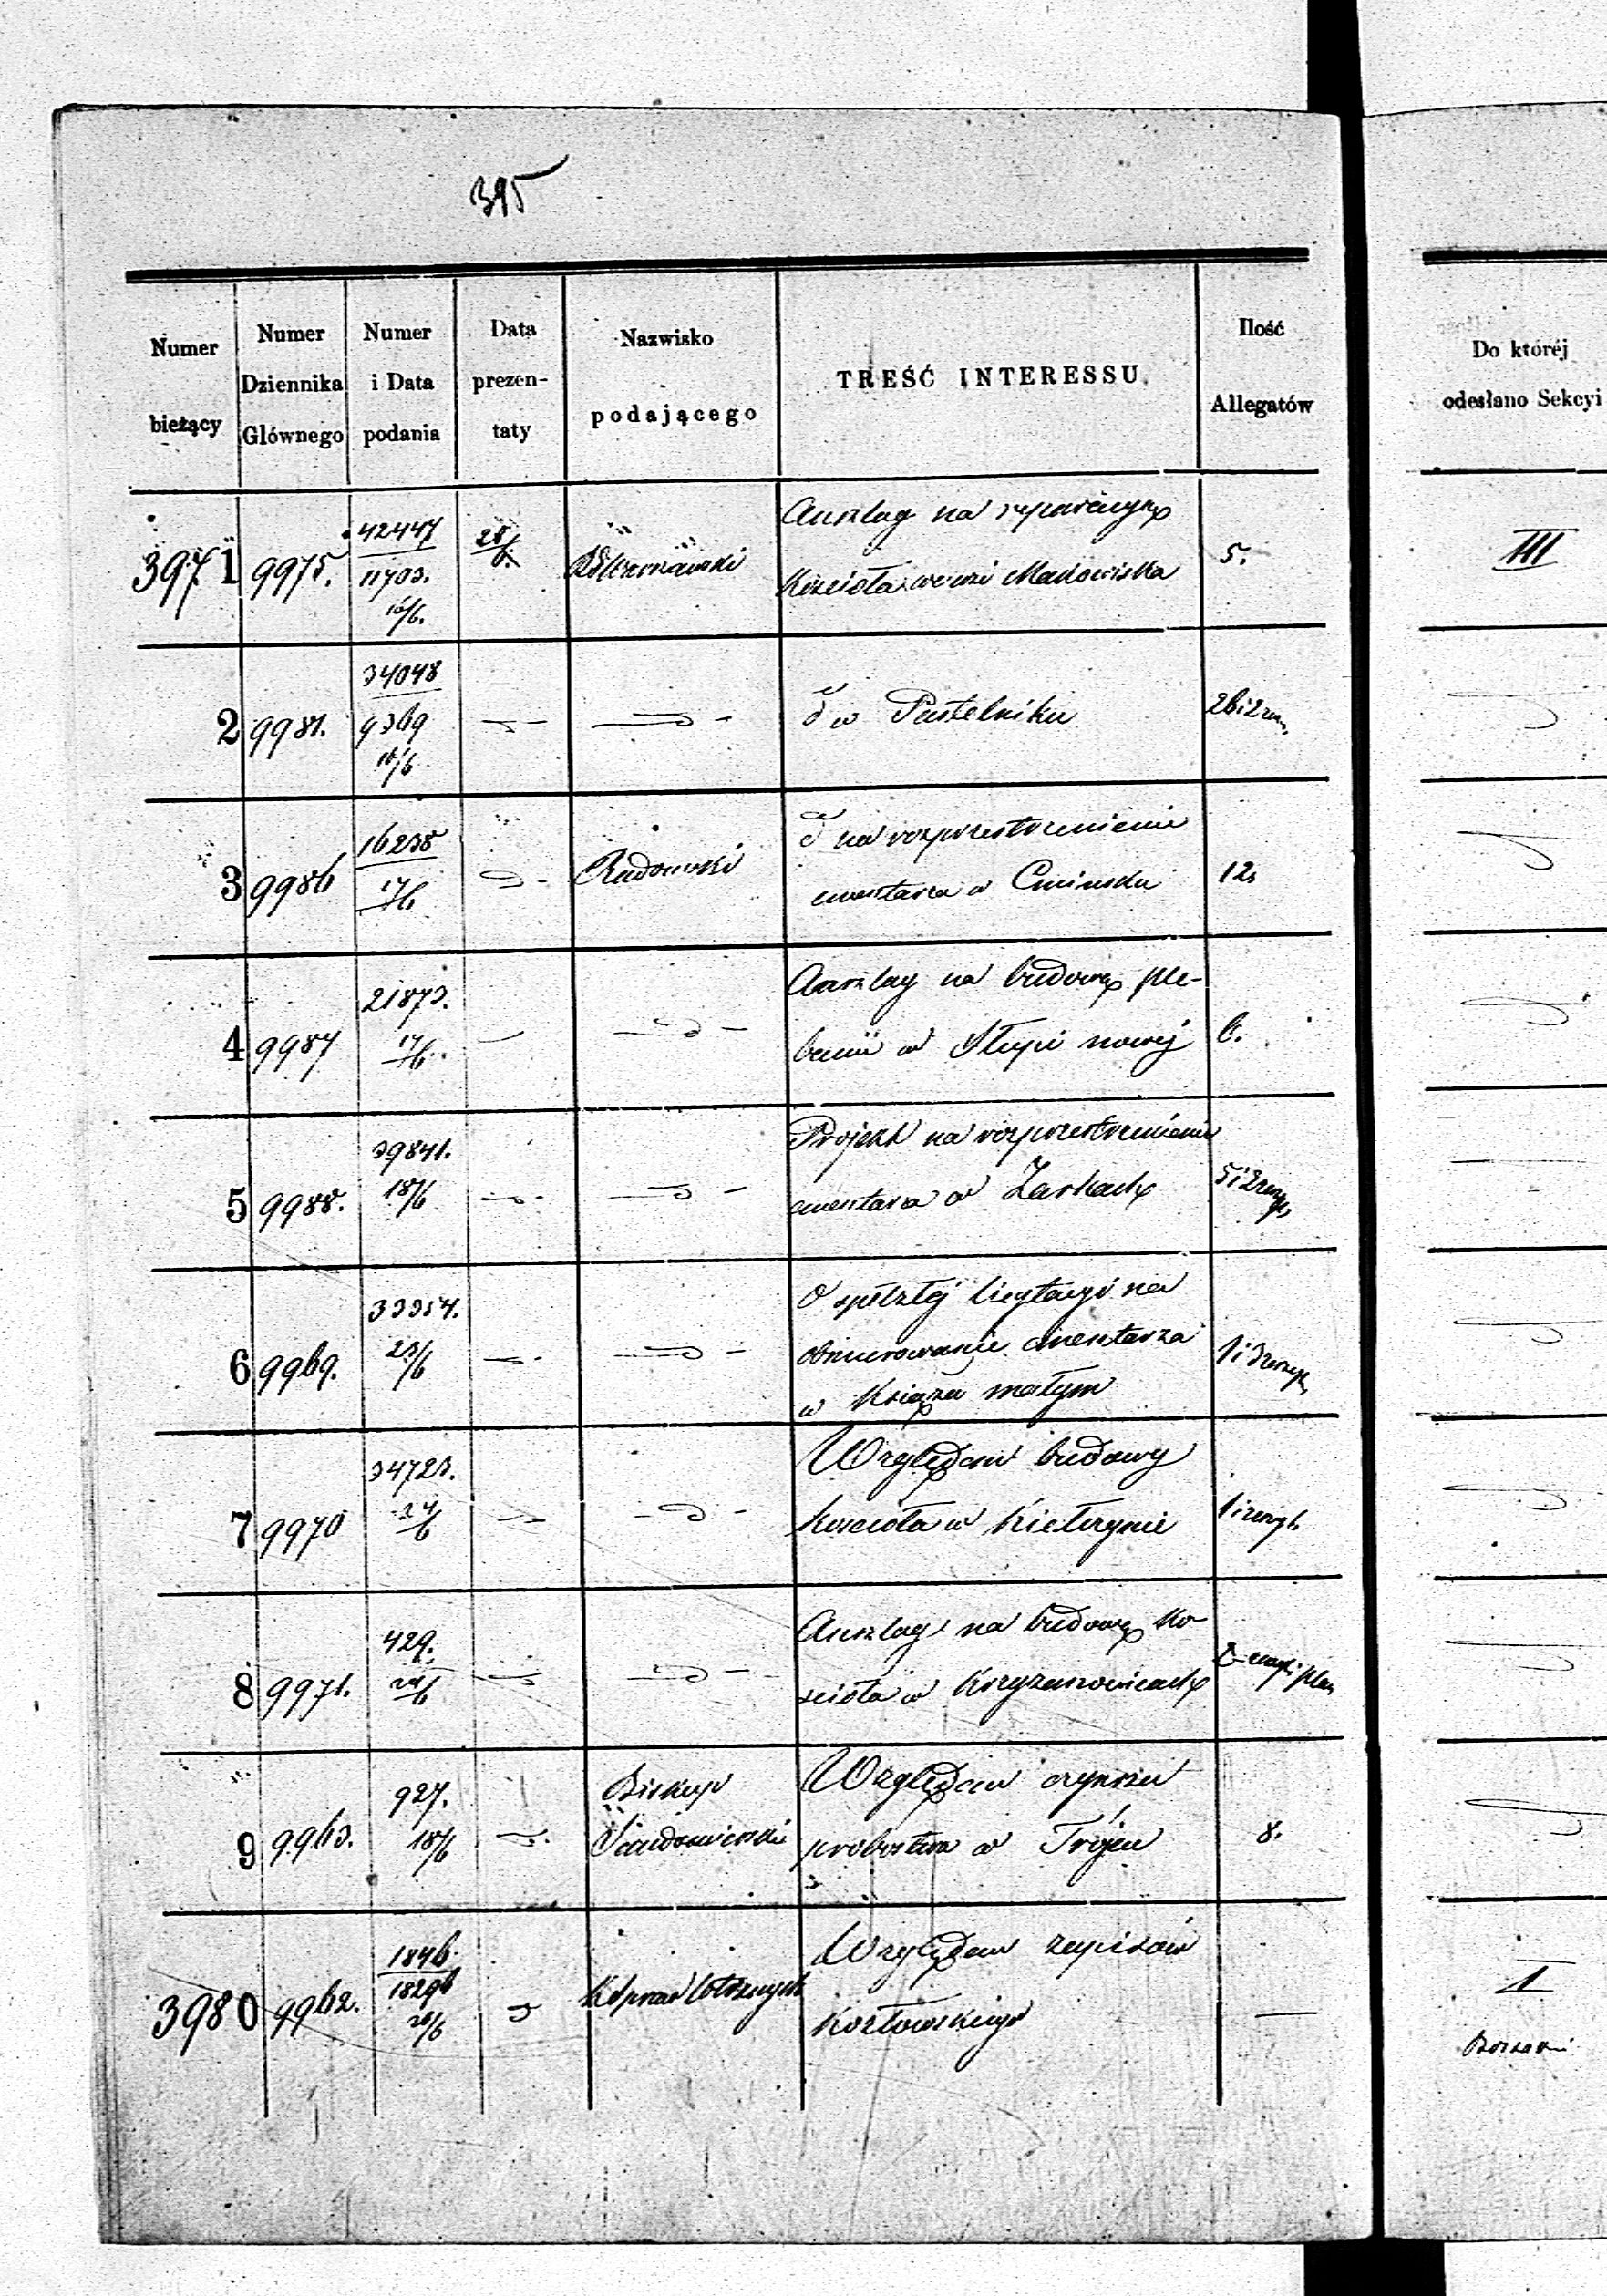 395
Numer bieżący
Numer Dziennika Głównego
Numer i Data podania
Data prezen-taty
Nazwisko podającego
TREŚĆ INTERESSU
Ilość Allegatów
Do któréj odesłano Sekcyi
3971 9975. 42447 11703. 16/6. 25/6. Anszlag na reparacyę
Kościoła we wsi Makowiska 5. III
2 9981. 34048 9369 16/6 d° w Pustelniku
3 9986 16238 17/6 Radomski d° na rozprzestrzenienie
cmentarza w Cminsku 12.
4 9987 21873. 17/6. Anszlag na budowę ple-
banii w Słupi nowéj 6.
5 9988. 39841. 18/6 Projekt na rozprzestrzenienie
cmentarza w Żarkach
6 9969. 33354. 23/6 O spełzłéj licytacyi na
obmurowanie cmentarza
w Książu małym
7 9970 34723. 24/6 Względem budowy
Kościoła w Kietrzynie
8 9971. 429. 24/6 Anszlag na budowę Ko-
ścioła w Krzyżanowicach
9 9963. 927. 18/6 Biskup
Sandomierski
Względem czynszu
probostwa w Trójcy 8.
3980 9962. 1846 18296 20/6 Względem zapisów
Kozłowskiego I